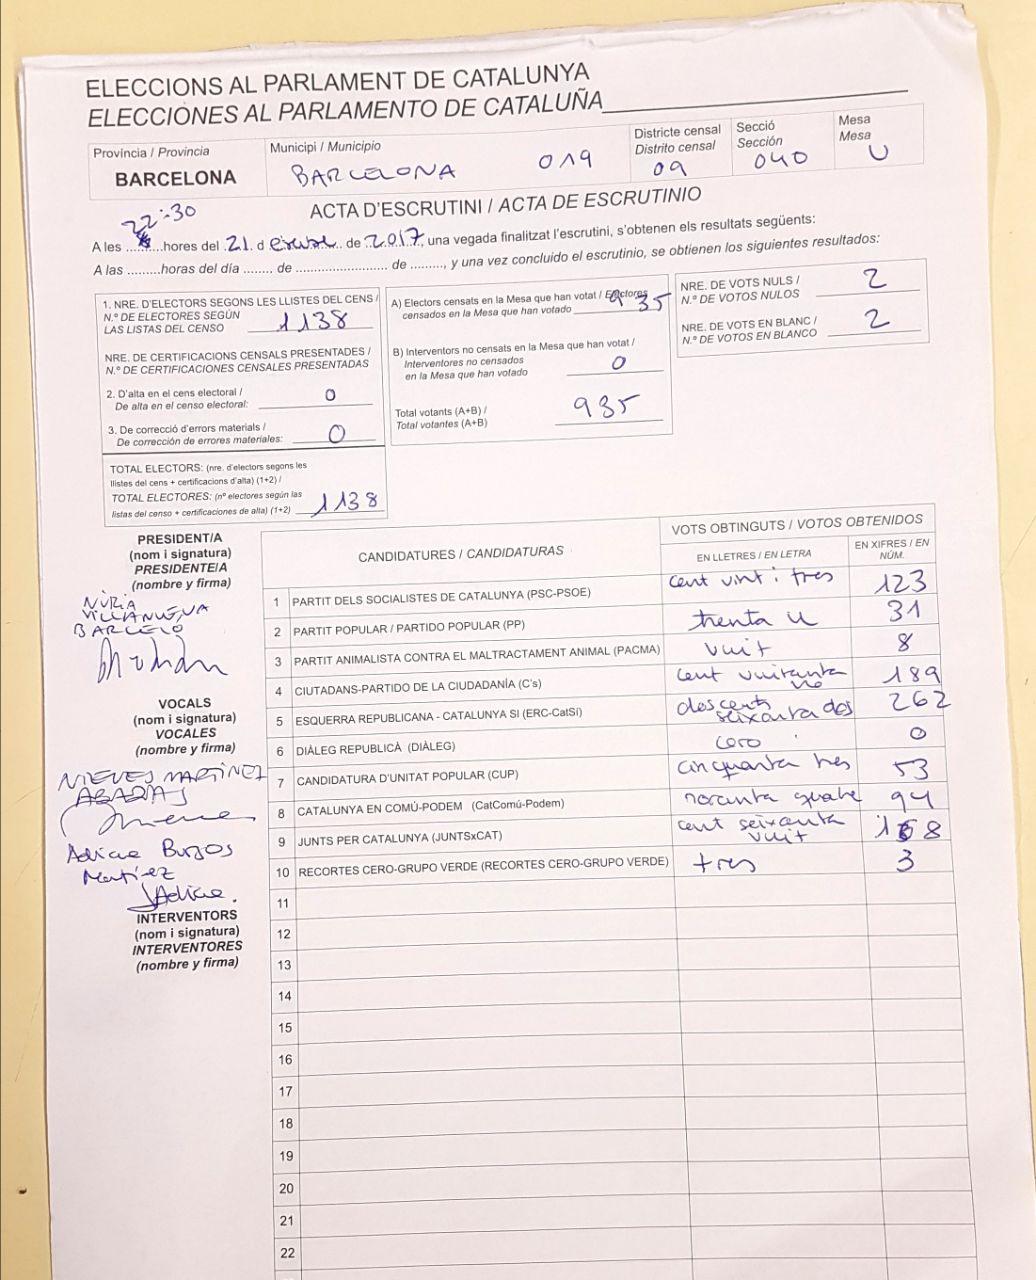 ELECCIONS AL PARLAMENT DE CATALUNYA
ELECCIONES AL PARLAMENTO DE CATALUÑA
Província / Provincia
BARCELONA
Municipi / Municipio
BARCELONA 019
Districte censal
Distrito censal
09
Secció
Sección
040
Mesa
Mesa
U
ACTA D'ESCRUTINI / ACTA DE ESCRUTINIO
22:30
A les ......hores del 21 d ... de 2017, una vegada finalitzat l'escrutini, s'obtenen els resultats següents:
A las .........horas del día ....... de ........................ de ........., y una vez concluido el escrutinio, se obtienen los siguientes resultados:
1. NRE. D'ELECTORS SEGONS LES LLISTES DEL CENS /
N.º DE ELECTORES SEGÚN
LAS LISTAS DEL CENSO 1138
NRE. DE CERTIFICACIONS CENSALS PRESENTADES /
N.º DE CERTIFICACIONES CENSALES PRESENTADAS
2. D'alta en el cens electoral /
De alta en el censo electoral: 0
3. De correcció d'errors materials /
De corrección de errores materiales: 0
TOTAL ELECTORS: (nre. d'electors segons les
llistes del cens + certificacions d'alta) (1+2) /
TOTAL ELECTORES: (nº electores según las
listas del censo + certificaciones de alta) (1+2) 1138
A) Electors censats en la Mesa que han votat / Electores
censados en la Mesa que han votado 935
B) Interventors no censats en la Mesa que han votat /
Interventores no censados
en la Mesa que han votado 0
Total votants (A+B) /
Total votantes (A+B) 935
NRE. DE VOTS NULS /
N.º DE VOTOS NULOS 2
NRE. DE VOTS EN BLANC /
N.º DE VOTOS EN BLANCO 2
PRESIDENT/A
(nom i signatura)
PRESIDENTE/A
(nombre y firma)
NÚRIA
VILLANUEVA
BARCELO
VOCALS
(nom i signatura)
VOCALES
(nombre y firma)
NIEVES MARTÍNEZ
Burgos
INTERVENTORS
(nom i signatura)
INTERVENTORES
(nombre y firma)
CANDIDATURES / CANDIDATURAS
VOTS OBTINGUTS / VOTOS OBTENIDOS
EN LLETRES / EN LETRA
EN XIFRES / EN NÚM.
1 PARTIT DELS SOCIALISTES DE CATALUNYA (PSC-PSOE) cent vint i tres 123
2 PARTIT POPULAR / PARTIDO POPULAR (PP) trenta u 31
3 PARTIT ANIMALISTA CONTRA EL MALTRACTAMENT ANIMAL (PACMA) vuit 8
4 CIUTADANS-PARTIDO DE LA CIUDADANÍA (C's) cent vuitanta no 189
5 ESQUERRA REPUBLICANA - CATALUNYA SI (ERC-CatSí) doscents seixanta dos 262
6 DIÀLEG REPUBLICÀ (DIÀLEG) cero 0
7 CANDIDATURA D'UNITAT POPULAR (CUP) cinquanta tres 53
8 CATALUNYA EN COMÚ-PODEM (CatComú-Podem) noranta quatre 94
9 JUNTS PER CATALUNYA (JUNTSxCAT) cent seixanta vuit 168
10 RECORTES CERO-GRUPO VERDE (RECORTES CERO-GRUPO VERDE) tres 3
11
12
13
14
15
16
17
18
19
20
21
22